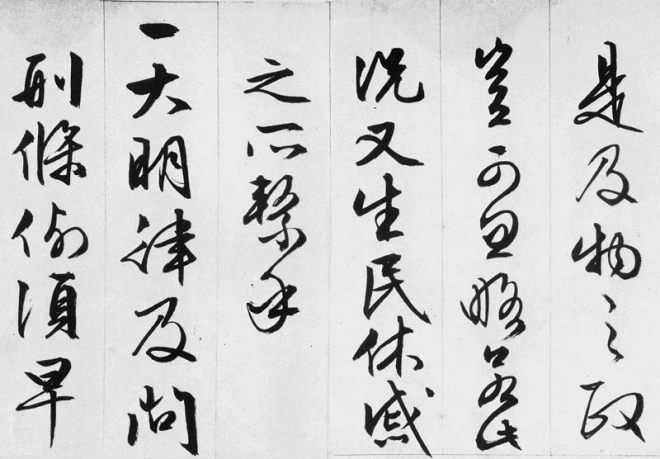 是及物之政
豈可忽略若此
况又生民休戚
之所繫乎
一大明律及問
刑條例須早